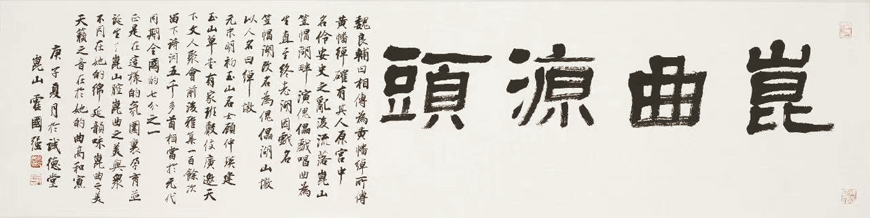 崑曲源頭
魏良輔曰相傳為黃幡綽所傅
黃幡綽確有其人原宮中
名伶安史之亂後流落崑山
笠帽湖畔演傀儡戲唱曲為
生直至終老湖因戲名
笠帽湖改名為傀儡湖山墩
以人名曰綽墩
元末明初玉山名士顧仲瑛建
玉山草堂有家班殷伎廣邀天
下文人聚會前後雅集一百餘次
留下詩詞五千多首相當於元代
同期全國的七分之一
正是在這樣的氛圍裏孕育並
誕生了崑山腔崑曲之美與眾
不同在她的綿延韻味崑曲之美
天籟之音在於她的曲高和寡
庚子夏月於誠德堂
崑山霍國強